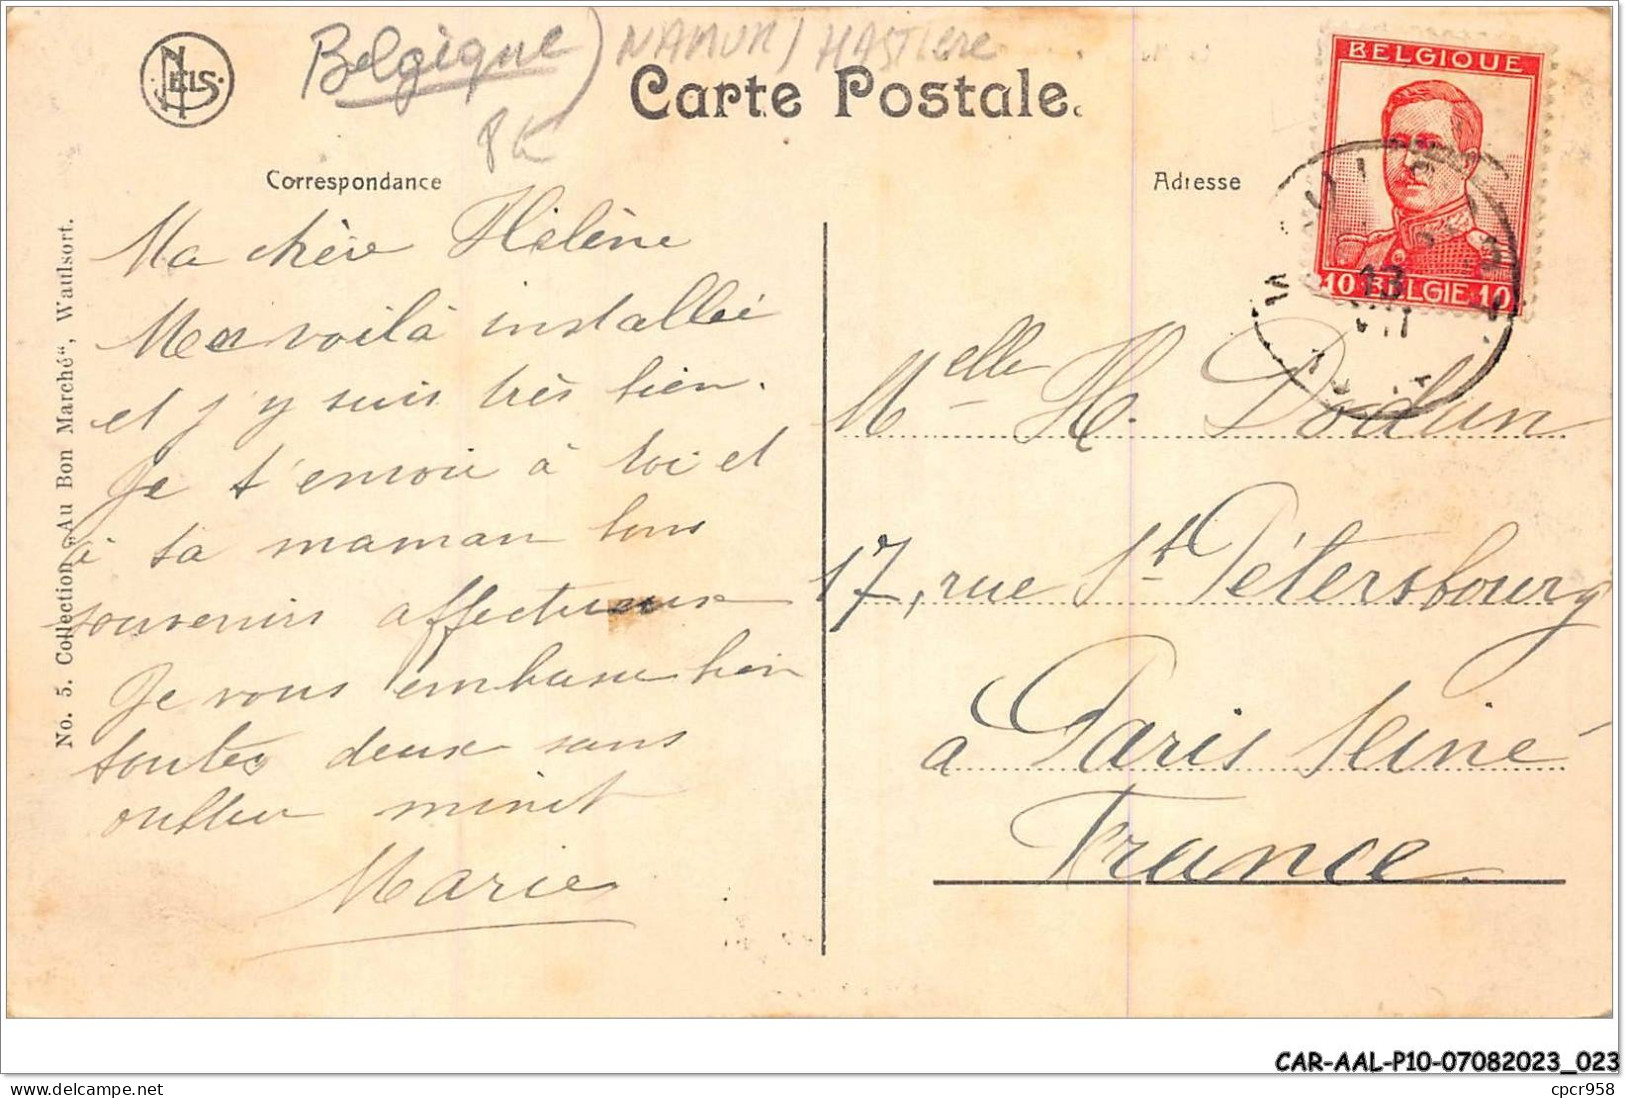 NELS
Belgique) NAMUR / HASTIERE
8€
Carte Postale.
BELGIQUE
10 BELGIE 10
13
VII
Correspondance
Adresse
No. 5. Collection „Au Bon Marché“, Waulsort.
Ma chère Hélène
Me voilà installée
et j'y suis très bien.
Je t'envoie à toi et
à ta maman tous
souvenirs affectueux
Je vous embrasse bien
toutes deux sans
oublier minet
Marie
Melle H. Dodun
17, rue St Pétersbourg
a Paris Seine
France
CAR-AAL-P10-07082023_023
www.delcampe.net
cpcr958